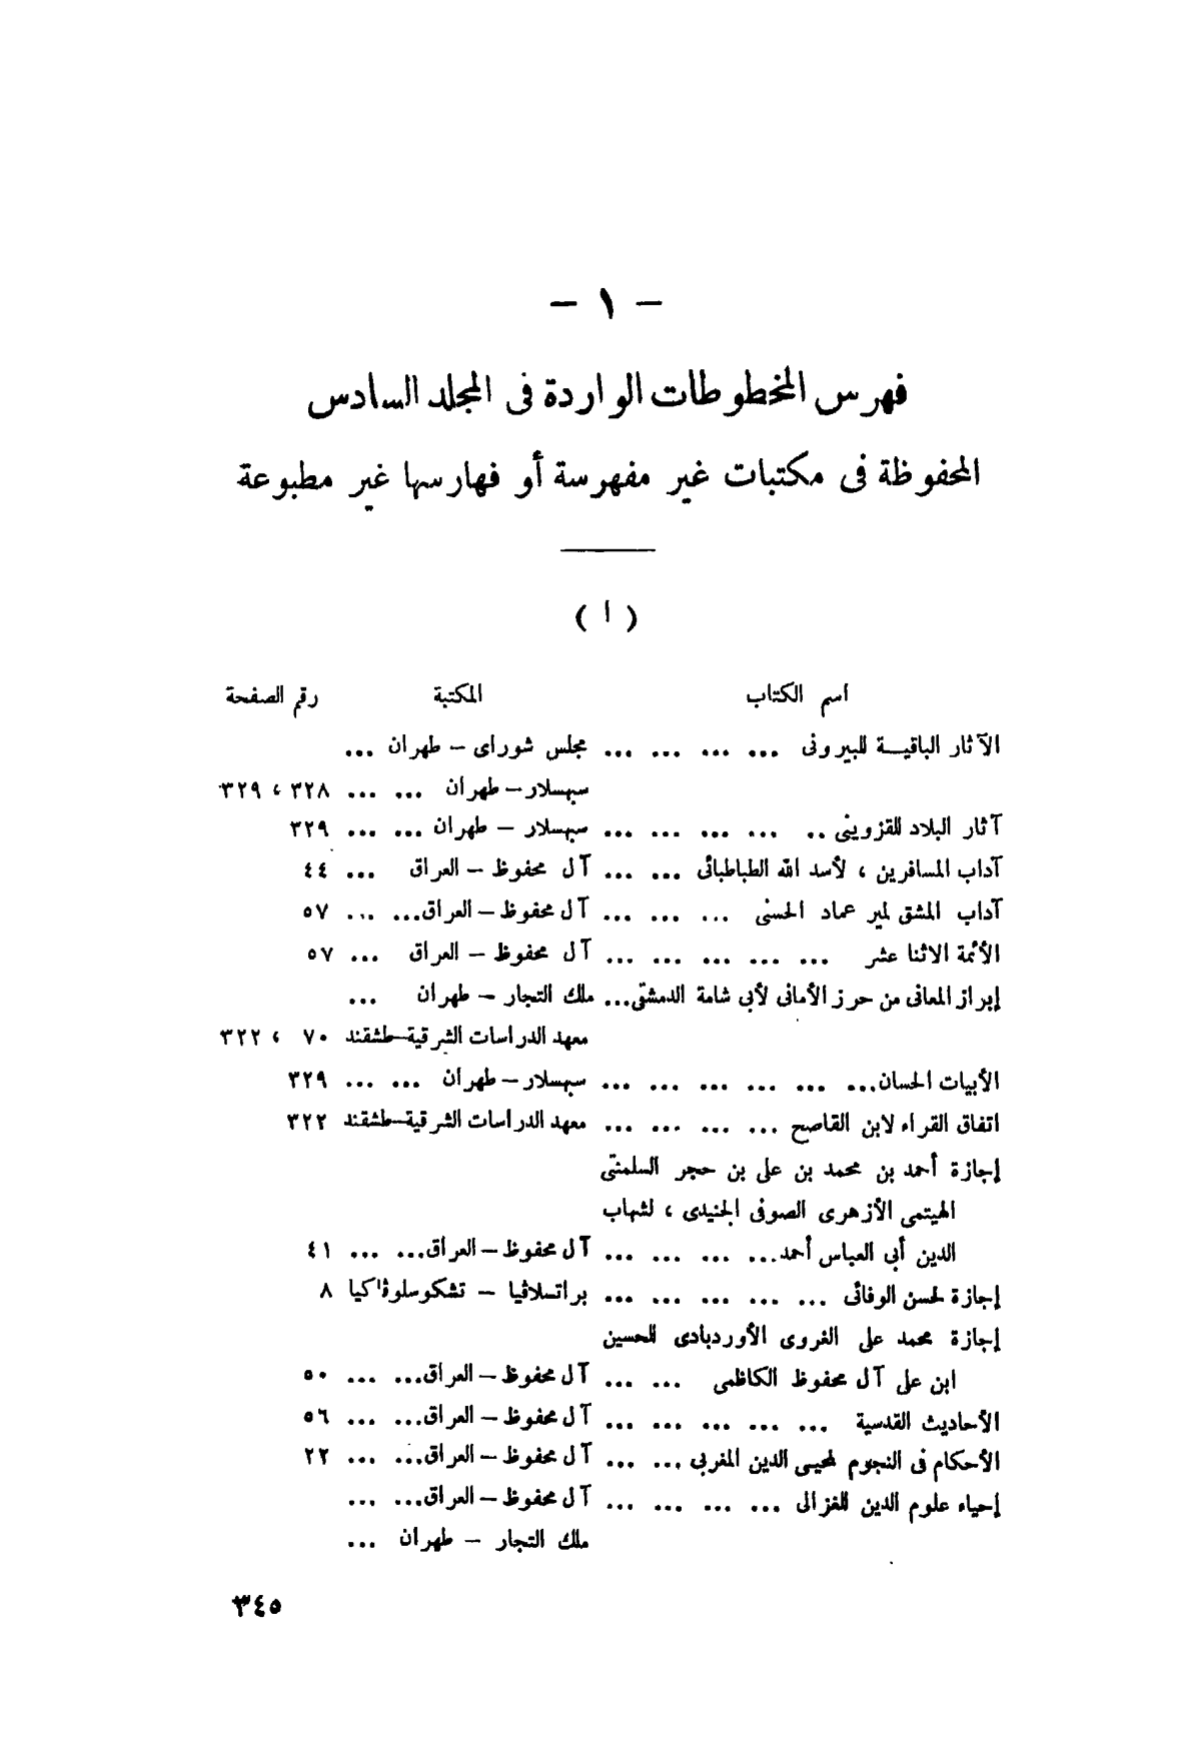 - ١ -
فهرس المخطوطات الواردة فى المجلد السادس
المحفوظة فى مكتبات غير مفهرسة أو فهارسها غير مطبوعة
( ا )
اسم الكتاب المكتبة رقم الصفحة
الآثار الباقيـة للبيرونى ... ... ... ... مجلس شوراى – طهران ...
سبهسلار – طهران ... ... ٣٢٨ ، ٣٢٩
آثار البلاد للقزوينى .. ... ... ... ... سبهسلار – طهران ... ... ٣٢٩
آداب المسافرين ، لأسد الله الطباطبائى ... ... آل محفوظ – العراق ... ٤٤
آداب المشق لمير عماد الحسنى ... ... ... آل محفوظ – العراق... ... ٥٧
الأئمة الاثنا عشر ... ... ... ... ... آل محفوظ – العراق ... ٥٧
إبراز المعانى من حرز الأمانى لأبي شامة الدمشقى... ملك التجار – طهران ...
معهد الدراسات الشرقية–طشقند ٧٠ ، ٣٢٢
الأبيات الحسان... ... ... ... ... ... سبهسلار – طهران ... ... ٣٢٩
اتفاق القراء لابن القاصح ... ... ... ... معهد الدراسات الشرقية–طشقند ٣٢٢
إجازة أحمد بن محمد بن على بن حجر السلمنتى
الهيتمى الأزهرى الصوفى الجنيدى ، لشهاب
الدين أبي العباس أحمد... ... ... ... آل محفوظ – العراق... ... ٤١
إجازة لحسن الوفائى ... ... ... ... ... براتسلاڤيا – تشكوسلوڤاكيا ٨
إجازة محمد على الغروى الأوردبادى للحسين
ابن على آل محفوظ الكاظمى ... ... آل محفوظ – العراق... ... ٥٠
الأحاديث القدسية ... ... ... ... ... آل محفوظ – العراق... ... ٥٦
الأحكام فى النجوم لمحيى الدين المغربي ... ... آل محفوظ – العراق... ... ٢٢
إحياء علوم الدين للغزالى ... ... ... ... آل محفوظ – العراق... ...
ملك التجار – طهران ...
٣٤٥